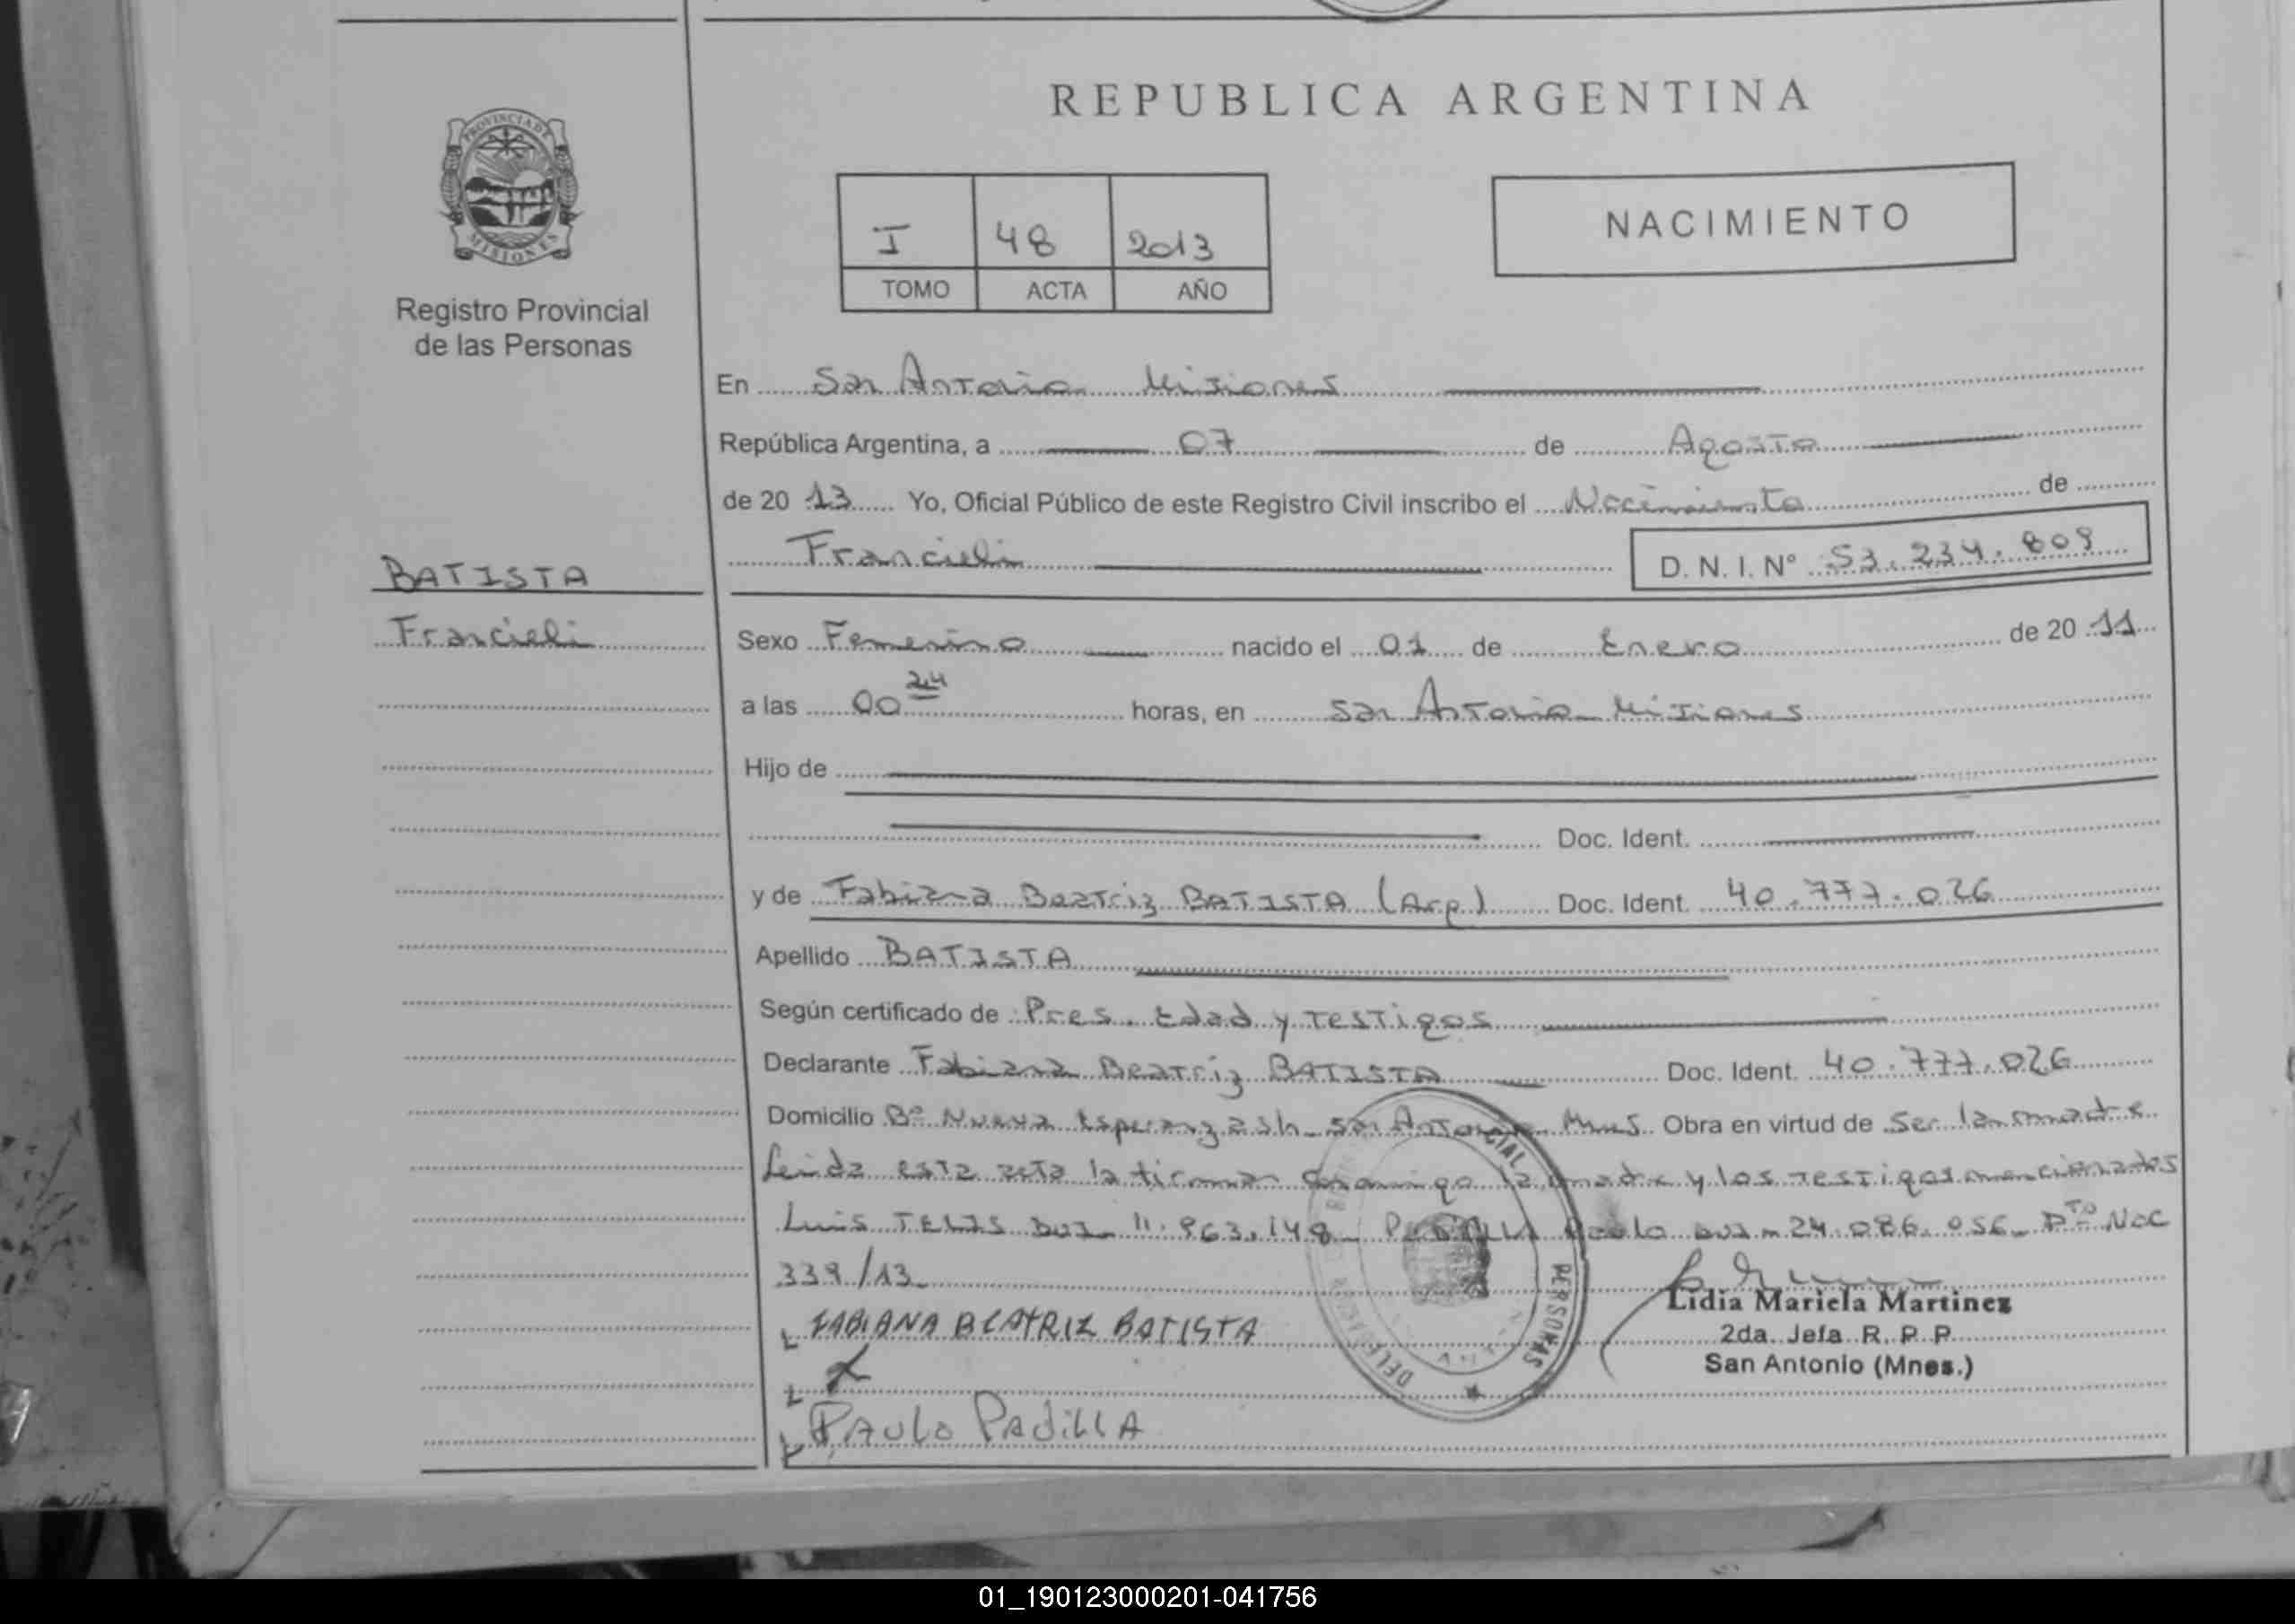 REPUBLICA ARGENTINA
PROVINCIA DE
MISIONES
Registro Provincial
de las Personas
I 48 2013
TOMO ACTA AÑO
NACIMIENTO
En San Antonio Misiones
República Argentina, a 07 de Agosto
de 20 13 Yo, Oficial Público de este Registro Civil inscribo el Nacimiento de
Francieli D. N. I. Nº 53.234.809
BATISTA
Francieli
Sexo Femenino nacido el 01 de Enero de 20 11
a las 00 24 horas, en San Antonio Misiones
Hijo de
Doc. Ident.
y de Fabiana Beatriz BATISTA (Arg) Doc. Ident. 40.777.026
Apellido BATISTA
Según certificado de Pres. Edad y Testigos
Declarante Fabiana Beatriz BATISTA Doc. Ident. 40.777.026
Domicilio Bº Nueva Esperanza s/n San Antonio Mnes Obra en virtud de Ser la madre
Leida esta acta la firman conmigo la madre y los testigos mencionados
Luis TELIS DNI 11.963.148 Paulo DNI 24.086.056
339/13
FABIANA BEATRIZ BATISTA
X
PAULO PADILLA
PERSONAS
Lidia Mariela Martinez
2da. Jefa R. P. P.
San Antonio (Mnes.)
01_190123000201-041756